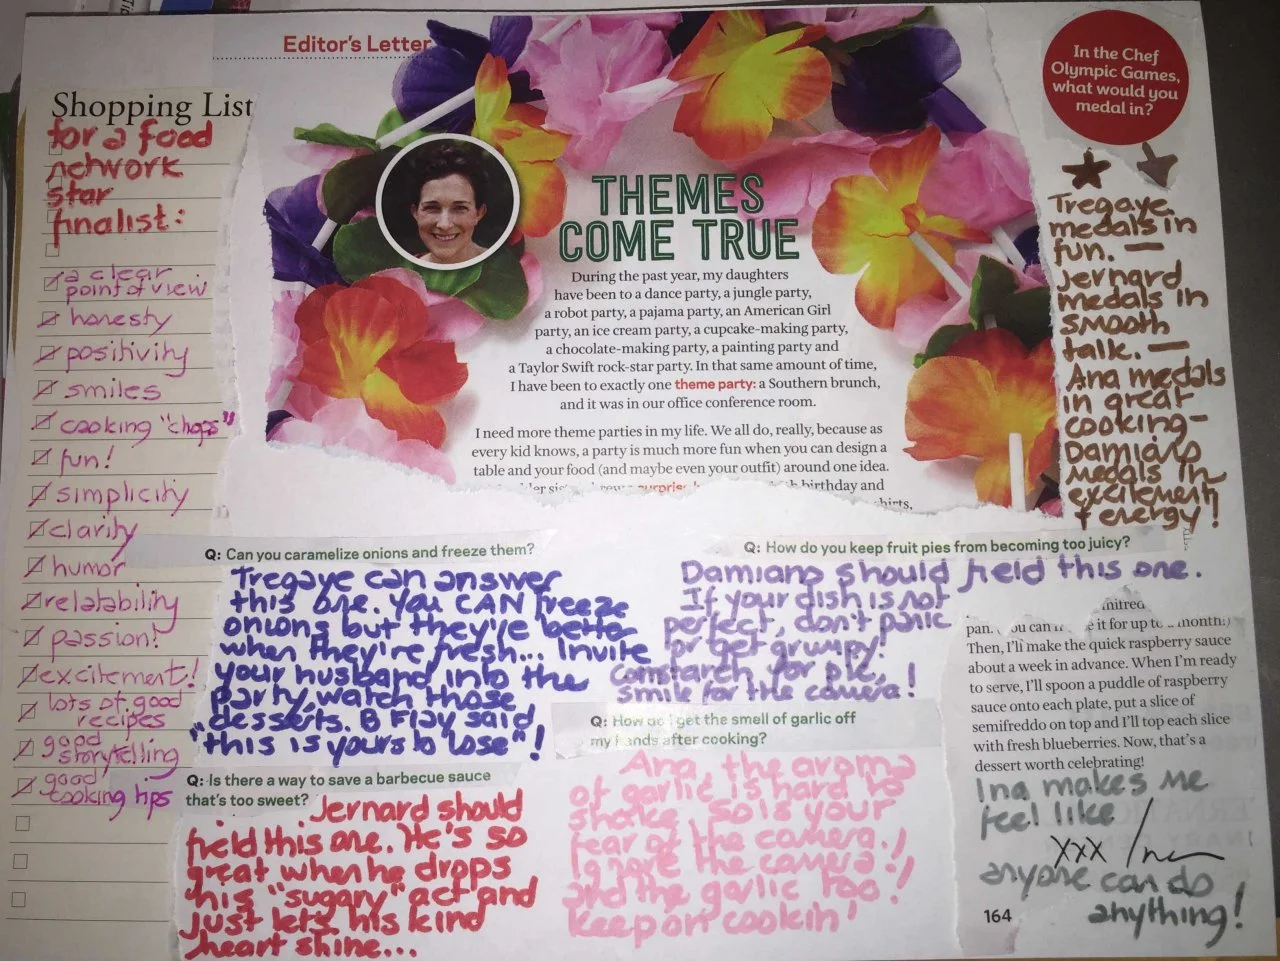 Editor's Letter
Shopping List
for a food
network
star
finalist:
a clear
point of view
honesty
positivity
smiles
cooking "chops"
fun!
simplicity
clarity
humor
relatability
passion!
excitement!
lots of good
recipes
good
storytelling
good
cooking tips
THEMES
COME TRUE
During the past year, my daughters
have been to a dance party, a jungle party,
a robot party, a pajama party, an American Girl
party, an ice cream party, a cupcake-making party,
a chocolate-making party, a painting party and
a Taylor Swift rock-star party. In that same amount of time,
I have been to exactly one theme party: a Southern brunch,
and it was in our office conference room.
I need more theme parties in my life. We all do, really, because as
every kid knows, a party is much more fun when you can design a
table and your food (and maybe even your outfit) around one idea.
birthday and
In the Chef
Olympic Games,
what would you
medal in?
Tregaye
medals in
fun. —
Jernard
medals in
smooth
talk. —
Ana medals
in great
cooking—
Damiano
medals in
excitement
+ energy!
Q: Can you caramelize onions and freeze them?
Tregaye can answer
this one. You CAN freeze
onions but they're better
when they're fresh... Invite
your husband into the
party, watch those
desserts. B Flay said
"this is yours to lose"!
Q: How do you keep fruit pies from becoming too juicy?
Damiano should field this one.
If your dish is not
perfect, don't panic
or get grumpy!
Cornstarch for pie,
smile for the camera!
Q: Is there a way to save a barbecue sauce
that's too sweet?
Jernard should
field this one. He's so
great when he drops
his "sugary" act and
just lets his kind
heart shine...
Q: How do I get the smell of garlic off
my hands after cooking?
Ana, the aroma
of garlic is hard to
shake. So is your
fear of the camera!
Ignore the camera!
and the garlic too!
Keep on cookin'
pan. You can it for up to a month.)
Then, I'll make the quick raspberry sauce
about a week in advance. When I'm ready
to serve, I'll spoon a puddle of raspberry
sauce onto each plate, put a slice of
semifreddo on top and I'll top each slice
with fresh blueberries. Now, that's a
dessert worth celebrating!
Ina makes me
feel like
xxx Ina
anyone can do
anything!
164